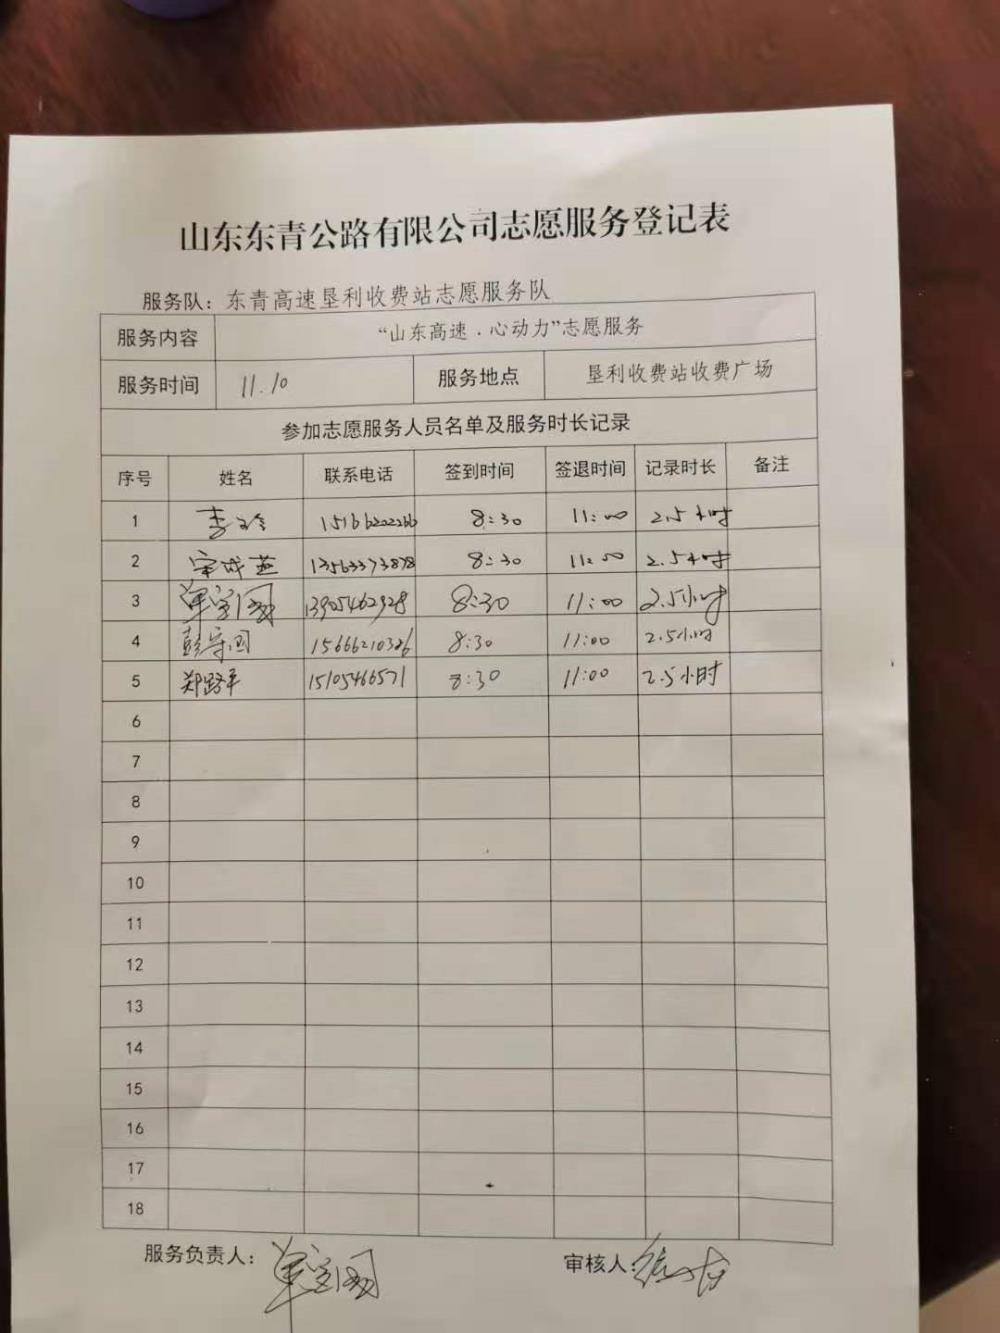 山东东青公路有限公司志愿服务登记表
服务队：东青高速垦利收费站志愿服务队
服务内容 “山东高速．心动力”志愿服务
服务时间 11.10 服务地点 垦利收费站收费广场
参加志愿服务人员名单及服务时长记录
序号 姓名 联系电话 签到时间 签退时间 记录时长 备注
1 李玲 15166202266 8:30 11:00 2.5小时
2 13563373878 8:30 11:00 2.5小时
3 单宝国 13905462928 8:30 11:00 2.5小时
4 彭守国 15666210326 8:30 11:00 2.5小时
5 郑路平 15105466571 8:30 11:00 2.5小时
6
7
8
9
10
11
12
13
14
15
16
17
18
服务负责人：单宝国 审核人：